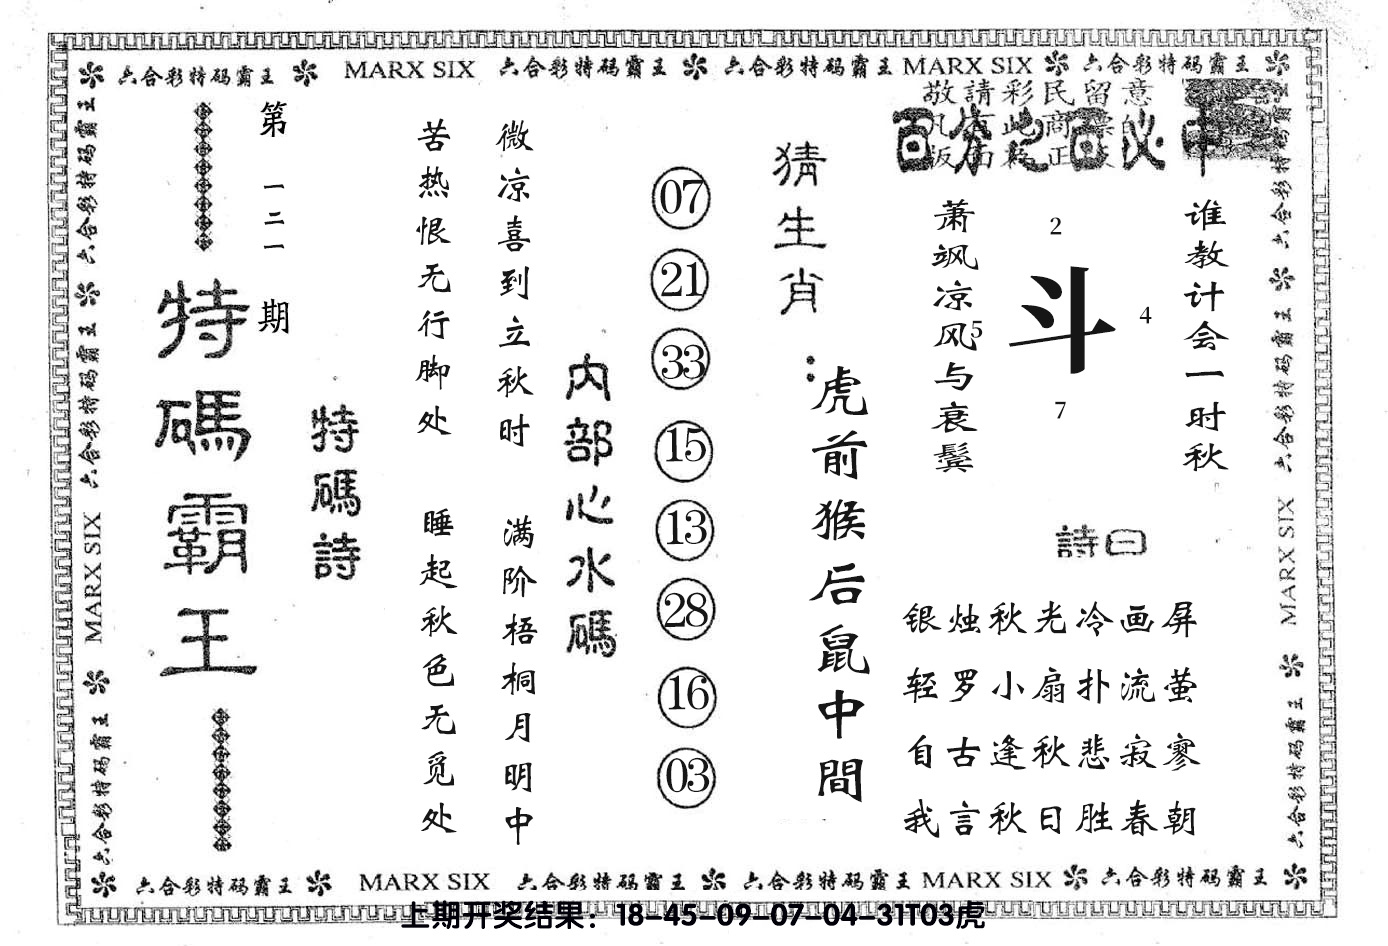 六合彩特码霸王 MARX SIX 六合彩特码霸王 六合彩特码霸王 MARX SIX 六合彩特码霸王
敬請彩民留意
百分之百必中
谁教计会一时秋
2
4
5
7
斗
萧飒凉风与衰鬓
詩曰
银烛秋光冷画屏
轻罗小扇扑流萤
自古逢秋悲寂寥
我言秋日胜春朝
猜生肖:
虎前猴后鼠中間
07
21
33
15
13
28
16
03
内部心水碼
微凉喜到立秋时
满阶梧桐月明中
苦热恨无行脚处
睡起秋色无觅处
特碼詩
第一二一期
特碼霸王
六合彩特码霸王 六合彩特码霸王 MARX SIX 六合彩特码霸王
六合彩特码霸王 六合彩特码霸王 MARX SIX 六合彩特码霸王
六合彩特码霸王 MARX SIX 六合彩特码霸王 六合彩特码霸王 MARX SIX 六合彩特码霸王
上期开奖结果：18-45-09-07-04-31T03虎